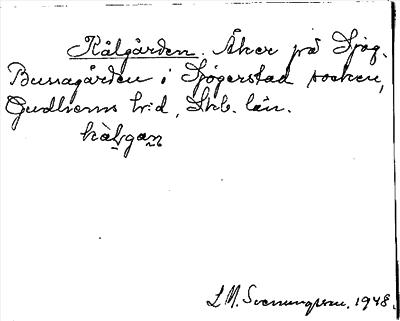 Kålgården. Åker på Sjög.
Bunagården i Sjögerstad socken,
Gudhems h:d, Skb. län.
kålgan
L. M. Svenungsson. 1948.